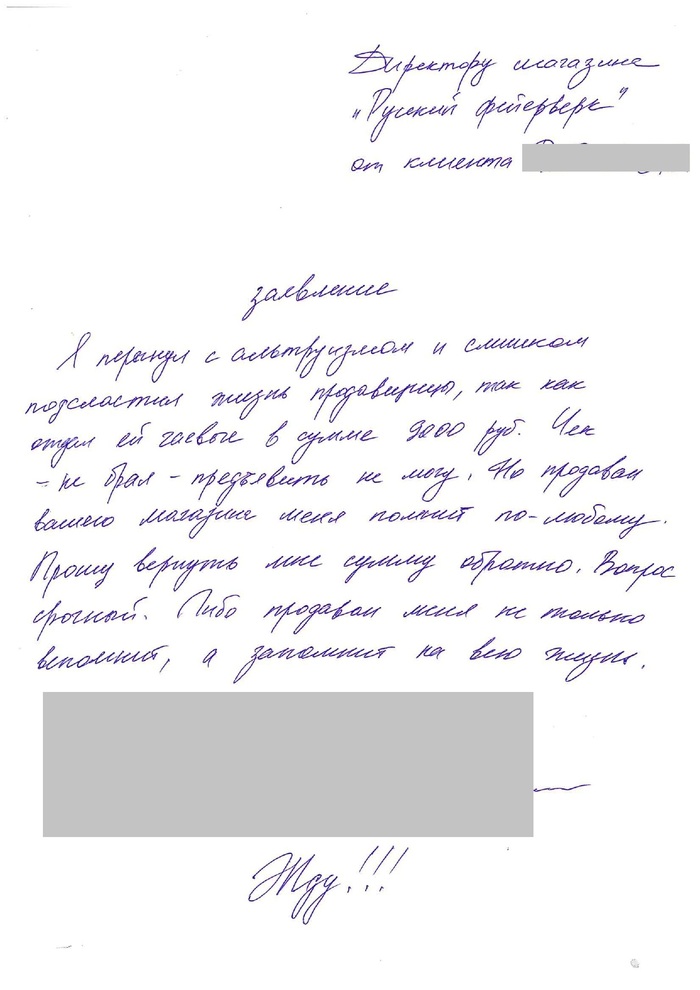 Директору магазина
"Русский фейерверк"
от клиента
заявление
Я перегнул с альтруизмом и слишком
подсластил жизнь продавщицы, так как
отдал ей чаевые в сумме 9200 руб. Чек
- не брал - предъявить не могу. Но продаван
вашего магазина меня помнит по-любому.
Прошу вернуть мне сумму обратно. Вопрос
срочный. Либо продаван меня не только
вспомнит, а запомнит на всю жизнь.
Жду!!!